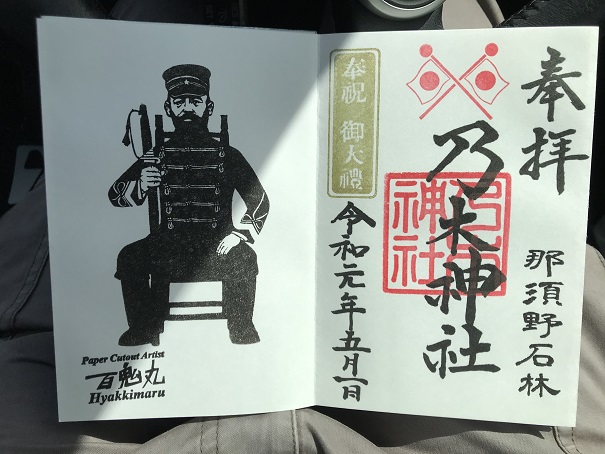 奉拝
那須野石林
乃木神社
乃木
神社
奉祝 御大禮
令和元年五月一日
Paper Cutout Artist
百鬼丸
Hyakkimaru